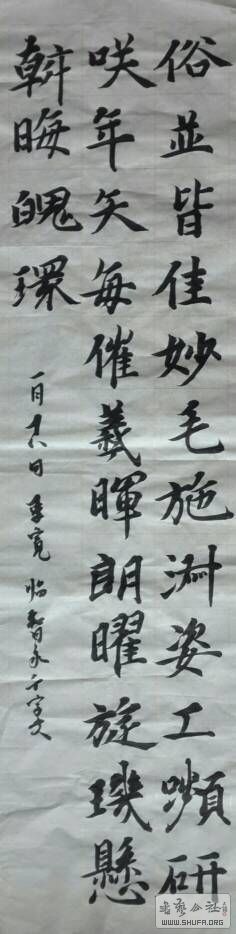 俗並皆佳妙毛施淑姿工嚬研
咲年矢每催羲暉朗曜旋璣懸
斡晦魄環
一月十八日 临智永千字文
书艺公社
WWW.SHUFA.ORG